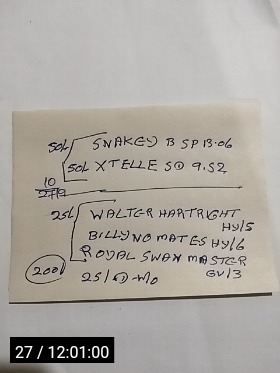 50/ SNAKEY B SP 13.06
50/ XTELLE SD 9.52
10
25/ WALTER HARTRIGHT
HY/5
BILLY NO MATES HY/6
ROYAL SWAN MASTER
GV/3
200/
25/
27 / 12:01:00